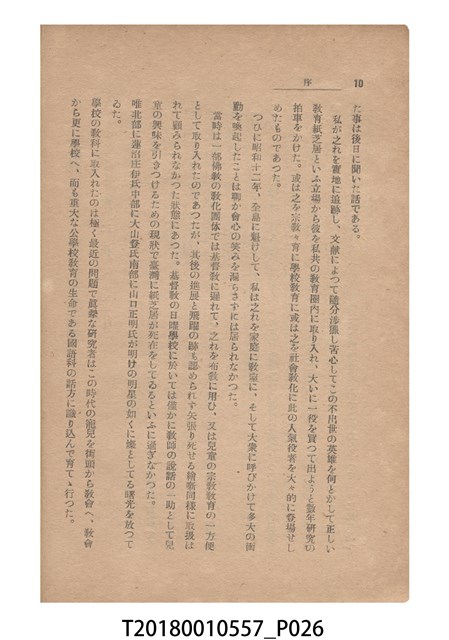 序
10
た事は後日に聞いた話である。
私が之れを實地に追跡し、文獻によつて隨分苦心してこの不出世の英雄を何とかして正しい
教育紙芝居といふ立場から彼を私共の教育圈内に取り入れ、大いに一役を買つて出ようと數年研究の
拍車をかけた。或は之を宗教々育に學校教育に或は之を社會教化に此の人氣役者を大々的に登場せし
めたものであつた。
つひに昭和十二年、全島に魁けして、私は之れを家庭に教室に、そして大衆に呼びかけて多大の衝
動を喚起したことは聊か會心の笑みを漏らさずには居られなかつた。
當時は一部佛教の教化團体では基督教に遲れて、之れを布教に用ひ、又は兒童の宗教教育の一方便
として取り入れたのであつたが、其後の進展と飛躍の跡も認められず矢張り尠せる繪噺同樣に取扱は
れて顧みられなかつた狀態にあつた。基督教の日曜學校に於いては僅かに教師の說話の一助として兒
童の興味を引きつけるための現狀で臺灣に紙芝居が死在をしてゐるといふに過ぎなかつた。
唯北部に蓮沼庄春氏中部に大山登氏南部に山口正明氏が明けの明星の如くに燦としてゐる曙光を放つて
ゐた。
學校の教科に取入れたのは極く最近の問題で眞摯な研究者はこの時代の寵兒を街頭から教會へ、教會
から更に學校へ、而も重大な公學校教育の生命である國語科の話方に織り込んで育てゝ行つた。
T20180010557_P026